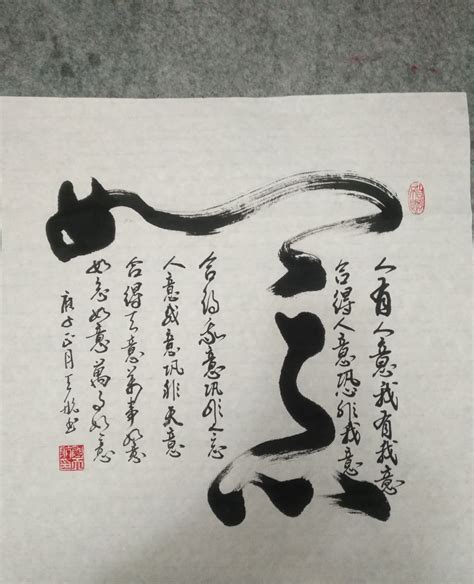 如意
人有人意我有我意
合得人意恐非我意
合得我意恐非人意
人意我意恐非天意
合得天意萬事如意
如意如意萬事如意
庚子正月王航书